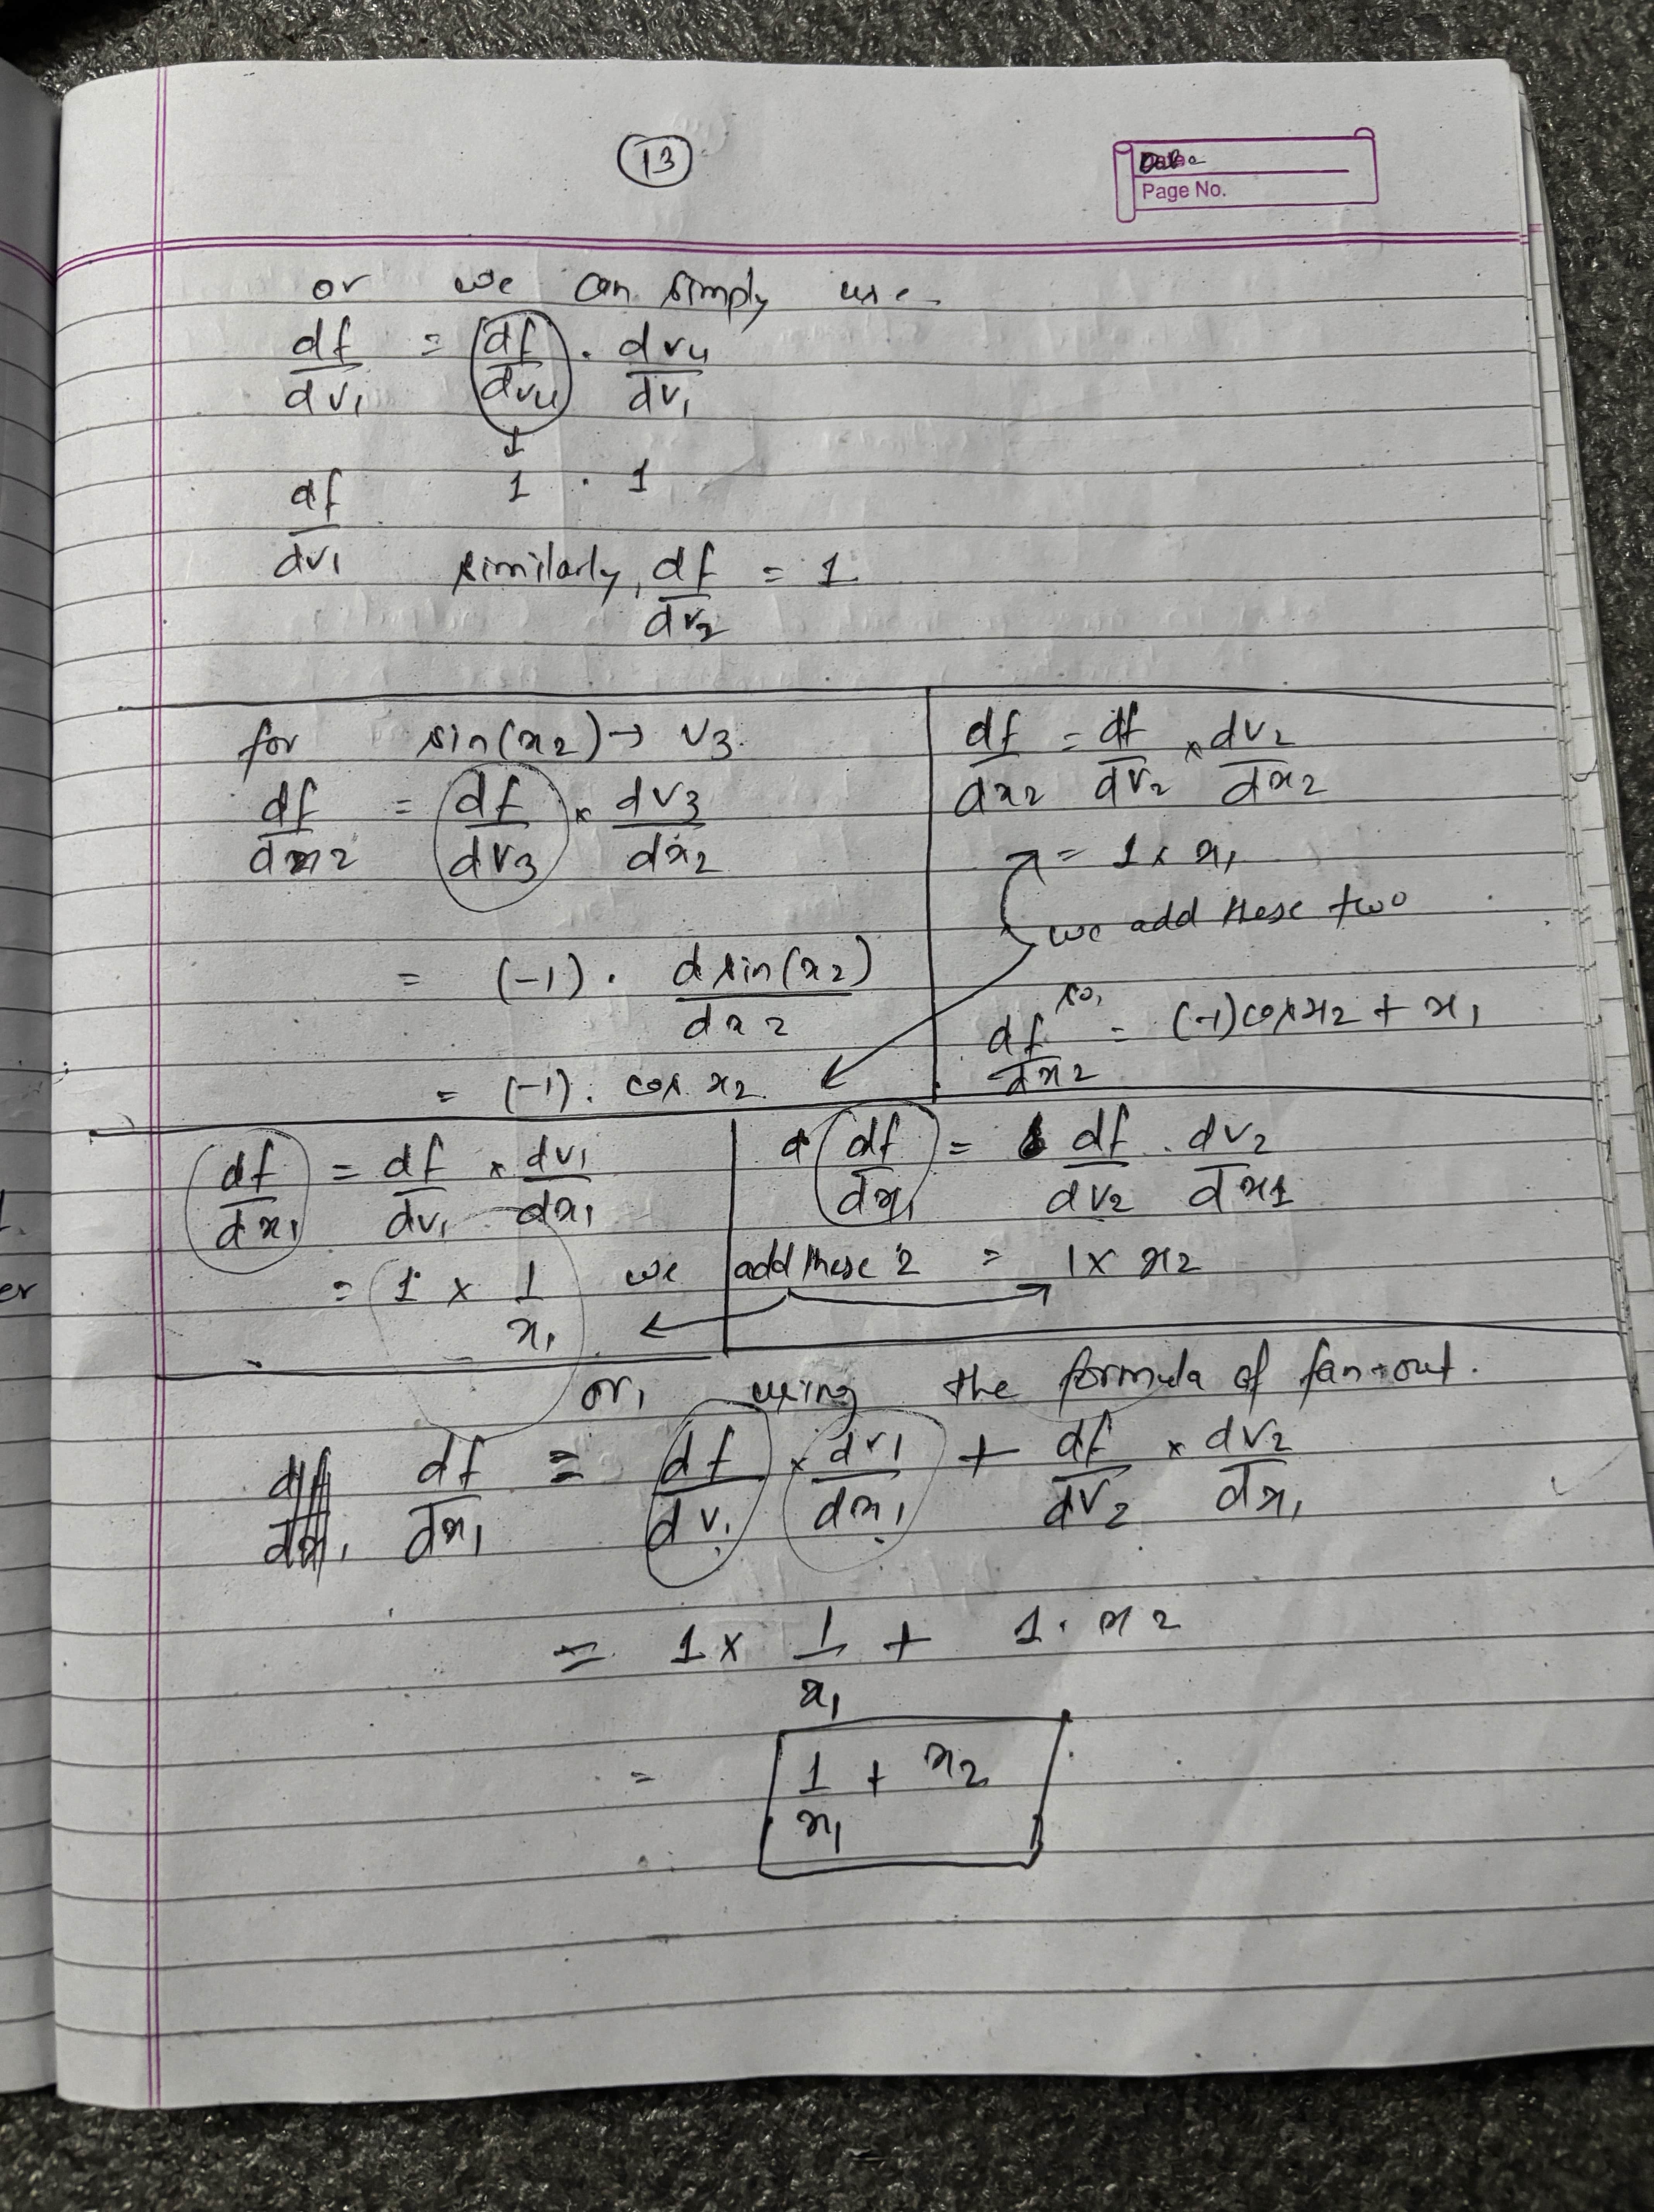 13
Page No.
or we can simply use.
df/dv1 = df/dv4 . dv4/dv1
↓
df/dv1 1 . 1
similarly, df/dv2 = 1
for sin(x2) → v3
df/dx2 = df/dv3 × dv3/dx2
= (-1) . d sin(x2)/dx2
= (-1) . cos x2
df/dx2 = df/dv2 × dv2/dx2
= 1 × x1
we add these two
so,
df/dx2 = (-1) cos x2 + x1
df/dx1 = df/dv1 × dv1/dx1
= 1 × 1/x1
df/dx1 = df/dv2 . dv2/dx1
we add these 2 = 1 × x2
or, using the formula of fan-out.
df/dx1 = df/dv1 × dv1/dx1 + df/dv2 × dv2/dx1
= 1 × 1/x1 + 1 . x2
= 1/x1 + x2